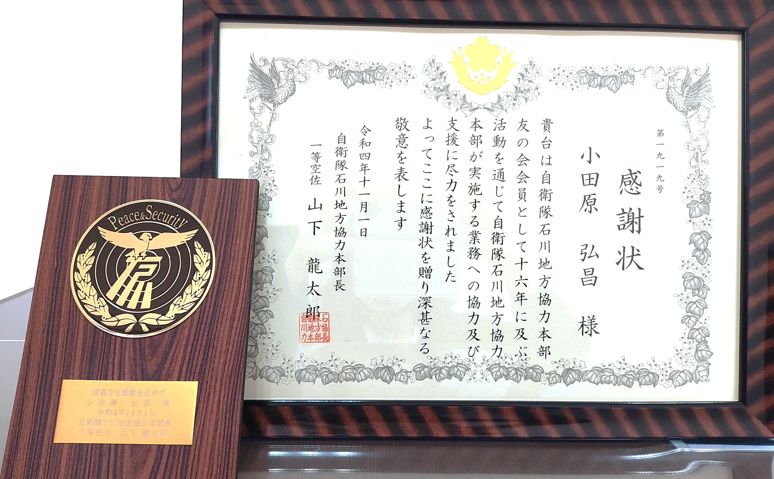 第一九一九号
感謝状
小田原 弘昌 様
貴台は自衛隊石川地方協力本部
友の会会員として十六年に及ぶ
活動を通じて自衛隊石川地方協力
本部が実施する業務への協力及び
支援に尽力をされました
よってここに感謝状を贈り深甚なる
敬意を表します
令和四年十一月一日
自衛隊石川地方協力本部長
一等空佐 山下 龍太郎
Peace&Security
深甚なる感謝を込めて
小田原 弘昌 様
令和4年11月1日
自衛隊石川地方協力本部長
1等空佐 山下 龍太郎